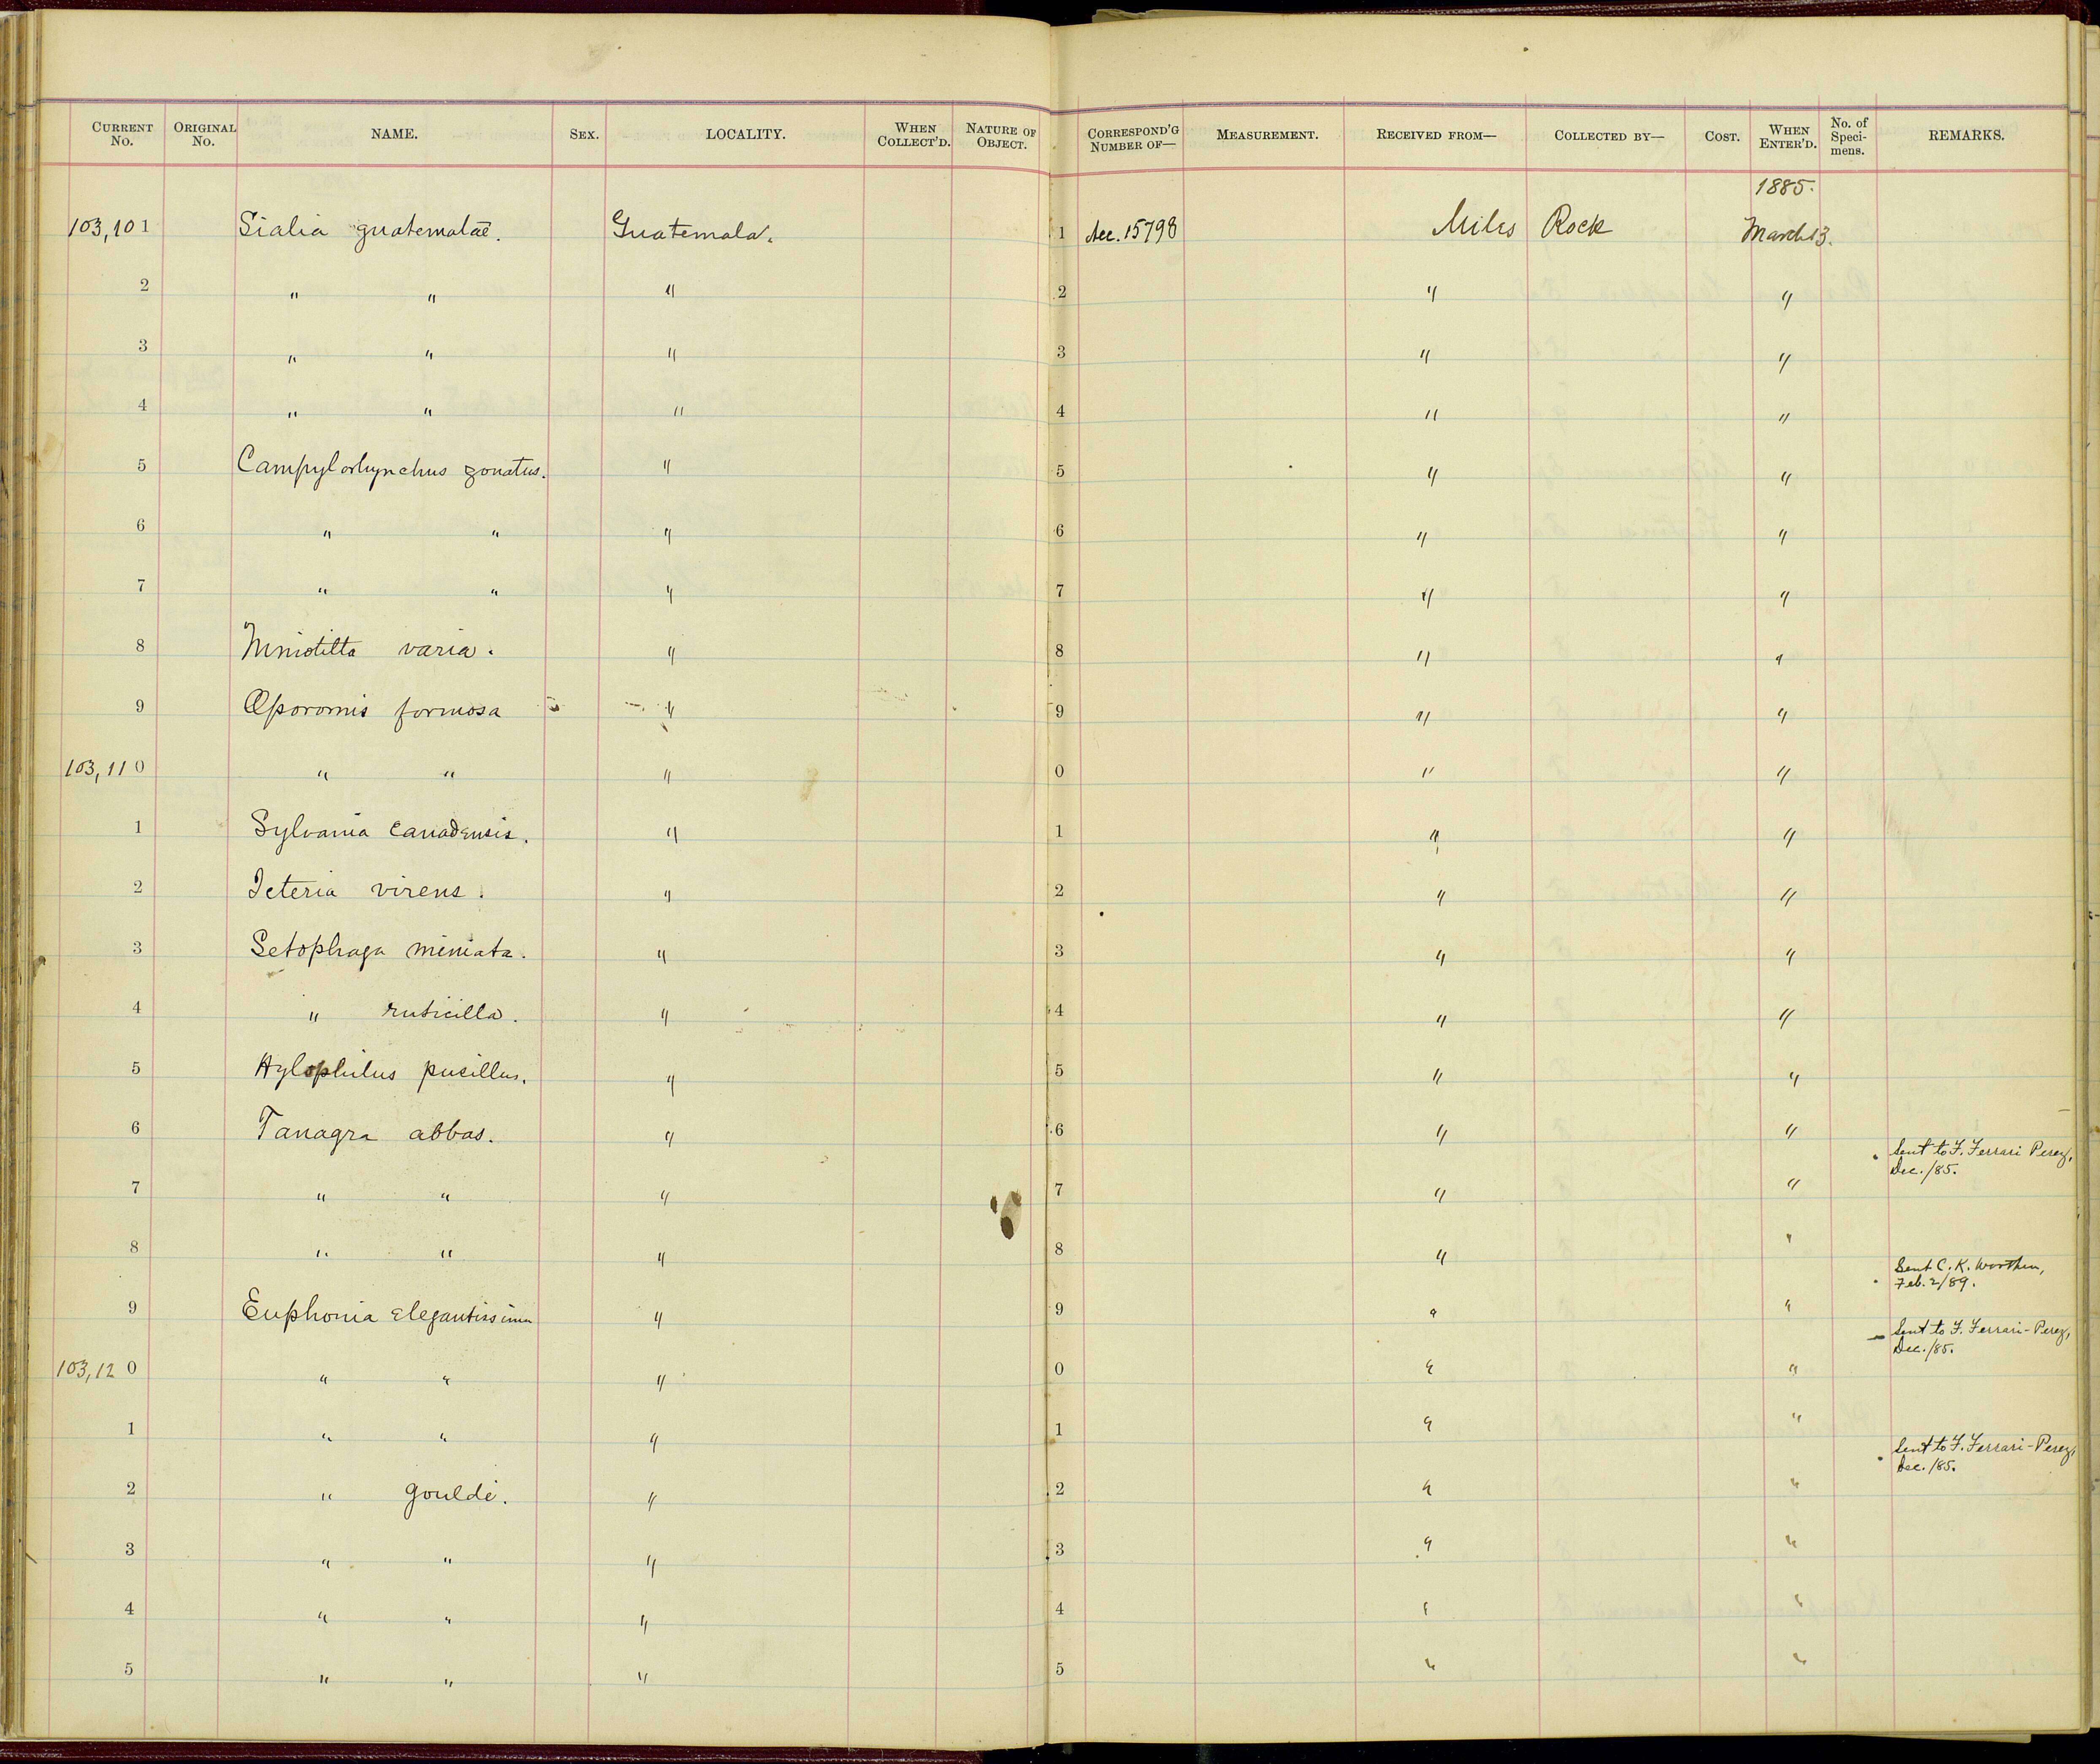 CURRENT No. ORIGINAL No. NAME. SEX. LOCALITY. WHEN COLLECT'D. NATURE OF OBJECT. CORRESPOND'G NUMBER OF— MEASUREMENT. RECEIVED FROM— COLLECTED BY— COST. WHEN ENTER'D. No. of Speci-mens. REMARKS.
1885.
103,101 Sialia guatemalae. Guatemala. 1 Acc. 15798 Miles Rock March 13.
2 " " " 2 " "
3 " " " 3 " "
4 " " " 4 " "
5 Campylorhynchus zonatus. " 5 " "
6 " " " 6 " "
7 " " " 7 " "
8 Mniotilta varia. " 8 " "
9 Oporornis formosa " 9 " "
103,110 " " " 0 " "
1 Sylvania canadensis. " 1 " "
2 Icteria virens. " 2 " "
3 Setophaga miniata. " 3 " "
4 " ruticilla. " 4 " "
5 Hylophilus pusillus. " 5 " "
6 Tanagra abbas. " 6 " "
Sent to F. Ferrari Perez,
Dec. /85.
7 " " " 7 " "
8 " " " 8 " "
Sent C. K. Worthen,
Feb. 2/89.
9 Euphonia elegantissima " 9 " "
Sent to F. Ferrari-Perez,
Dec. /85.
103,120 " " " 0 " "
1 " " " 1 " "
Sent to F. Ferrari-Perez,
Dec. /85.
2 " gouldi. " 2 " "
3 " " " 3 " "
4 " " " 4 " "
5 " " " 5 " "